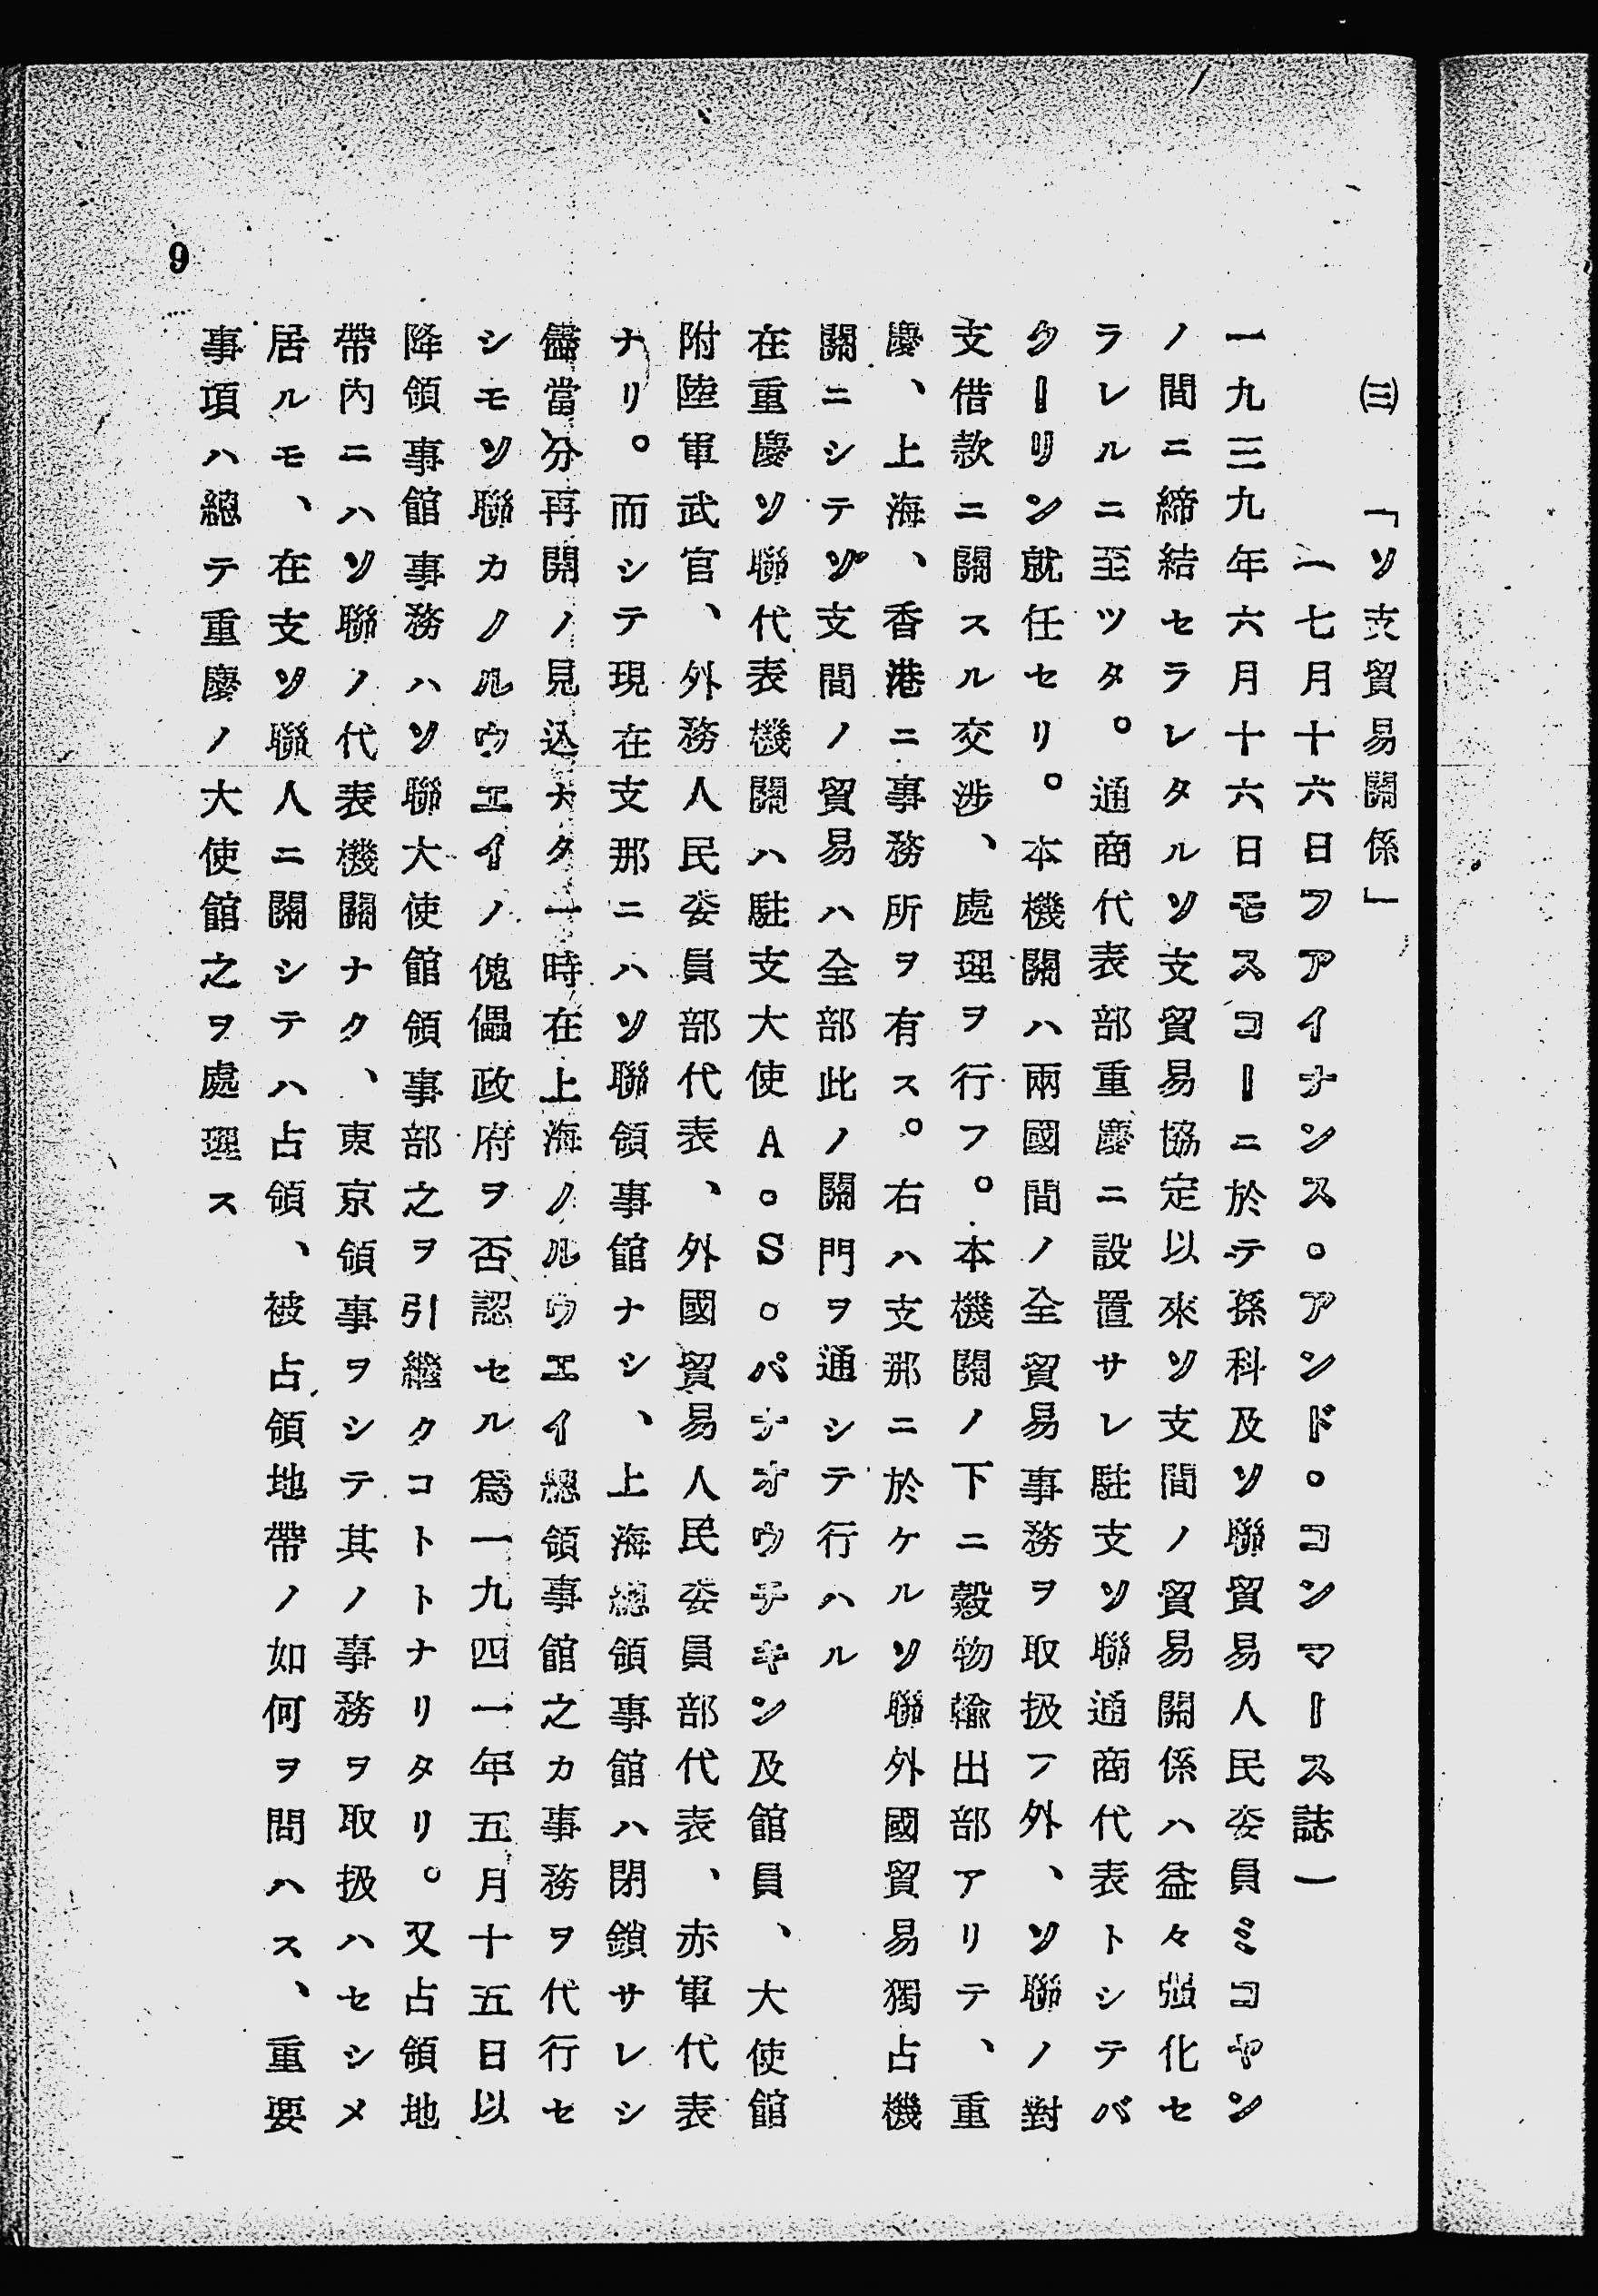 ㈢　「ソ支貿易關係」
（七月十六日フアイナンス。アンド。コンマース誌）
一九三九年六月十六日モスコーニ於テ孫科及ソ聯貿易人民委員ミコヤン
ノ間ニ締結セラレタルソ支貿易協定以來ソ支間ノ貿易關係ハ益々强化セ
ラレルニ至ツタ。通商代表部重慶ニ設置サレ駐支ソ聯通商代表トシテバ
クーリン就任セリ。本機關ハ兩國間ノ全貿易事務ヲ取扱フ外、ソ聯ノ對
支借款ニ關スル交渉、處理ヲ行フ。本機關ノ下ニ穀物輸出部アリテ、重
慶、上海、香港ニ事務所ヲ有ス。右ハ支那ニ於ケルソ聯外國貿易獨占機
關ニシテソ支間ノ貿易ハ全部此ノ關門ヲ通シテ行ハル
在重慶ソ聯代表機關ハ駐支大使A。S。パナオウチキン及館員、大使館
附陸軍武官、外務人民委員部代表、外國貿易人民委員部代表、赤軍代表
ナリ。而シテ現在支那ニハソ聯領事館ナシ、上海總領事館ハ閉鎖サレシ
儘當分再開ノ見込ナク一時在上海ノルウエイ總領事館之カ事務ヲ代行セ
シモソ聯カノルウエイノ傀儡政府ヲ否認セル爲一九四一年五月十五日以
降領事館事務ハソ聯大使館領事部之ヲ引繼クコトトナリタリ。又占領地
帶内ニハソ聯ノ代表機關ナク、東京領事ヲシテ其ノ事務ヲ取扱ハセシメ
居ルモ、在支ソ聯人ニ關シテハ占領、被占領地帶ノ如何ヲ問ハス、重要
事項ハ總テ重慶ノ大使館之ヲ處理ス
9